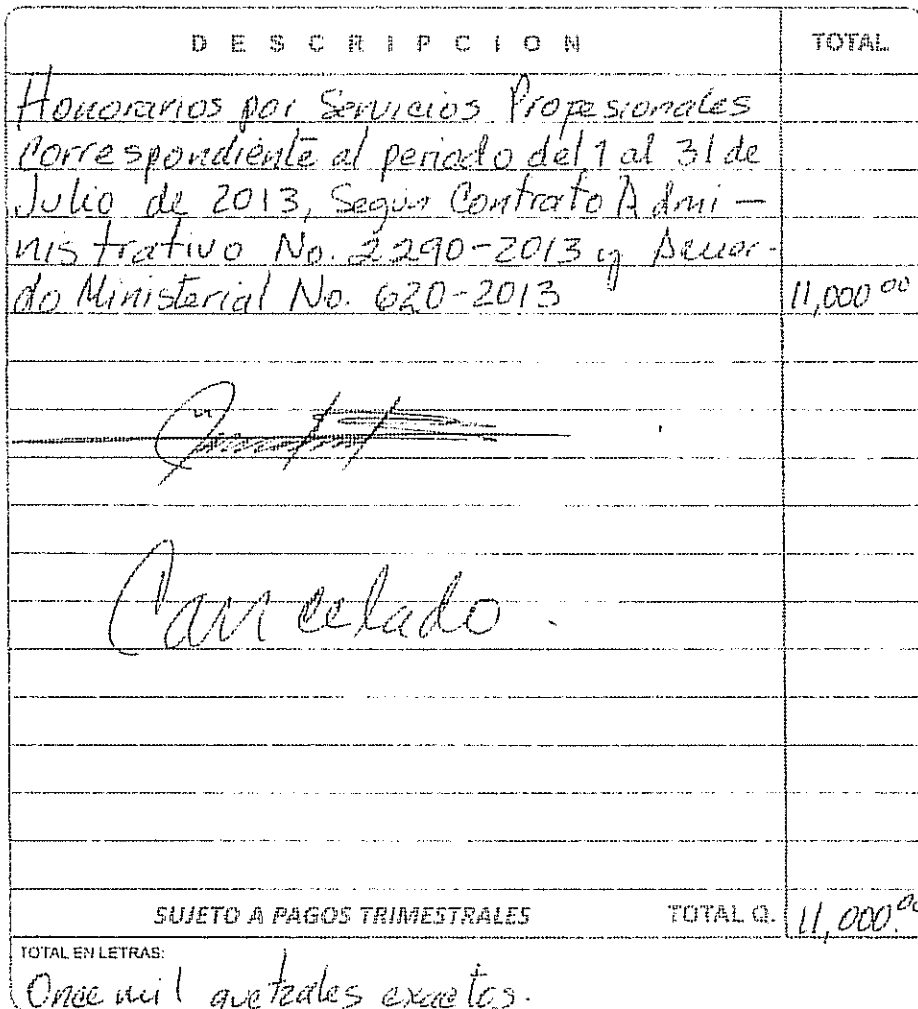 DESCRIPCION TOTAL
Honorarios por Servicios Profesionales
Correspondiente al periodo del 1 al 31 de
Julio de 2013, Segun Contrato Admi-
nistrativo No. 2290-2013 y Acuer-
do Ministerial No. 620-2013 11,000 00
Cancelado.
SUJETO A PAGOS TRIMESTRALES TOTAL Q. 11,000.00
TOTAL EN LETRAS:
Once mil quetzales exactos.